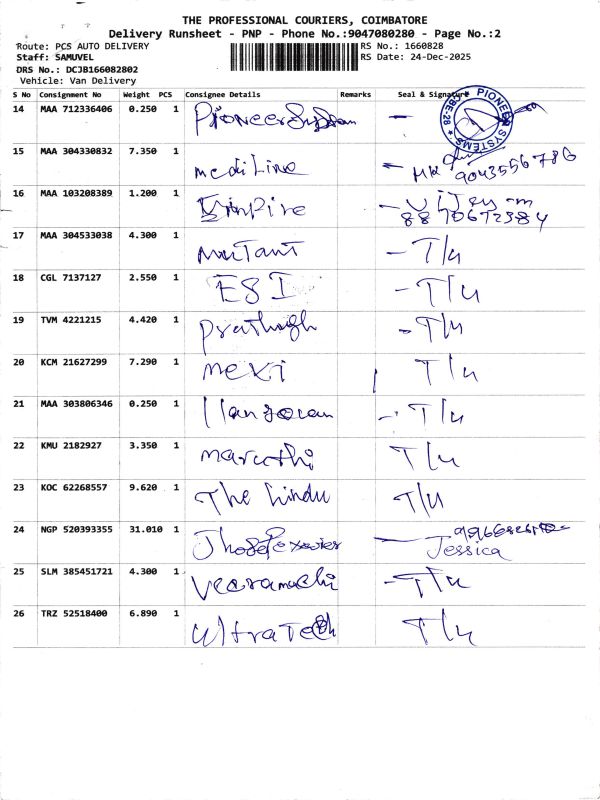 THE PROFESSIONAL COURIERS, COIMBATORE
Delivery Runsheet - PNP - Phone No.:9047080280 - Page No.:2
Route: PCS AUTO DELIVERY RS No.: 1660828
Staff: SAMUVEL RS Date: 24-Dec-2025
DRS No.: DCJB166082802
Vehicle: Van Delivery
S No Consignment No Weight PCS Consignee Details Remarks Seal & Signature
14 MAA 712336406 0.250 1 Pioneer System - PIONEER SYSTEMS CBE-28
15 MAA 304330832 7.350 1 mediline 9043556786
16 MAA 103208389 1.200 1 Empire - 8870672384
17 MAA 304533038 4.300 1 mutant - T/u
18 CGL 7137127 2.550 1 ESI - T/u
19 TVM 4221215 4.420 1 - T/u
20 KCM 21627299 7.290 1 mexi T/u
21 MAA 303806346 0.250 1 - T/u
22 KMU 2182927 3.350 1 maruthi T/u
23 KOC 62268557 9.620 1 The hindu T/u
24 NGP 520393355 31.010 1 - Jessica
25 SLM 385451721 4.300 1 - T/u
26 TRZ 52518400 6.890 1 UltraTech T/u